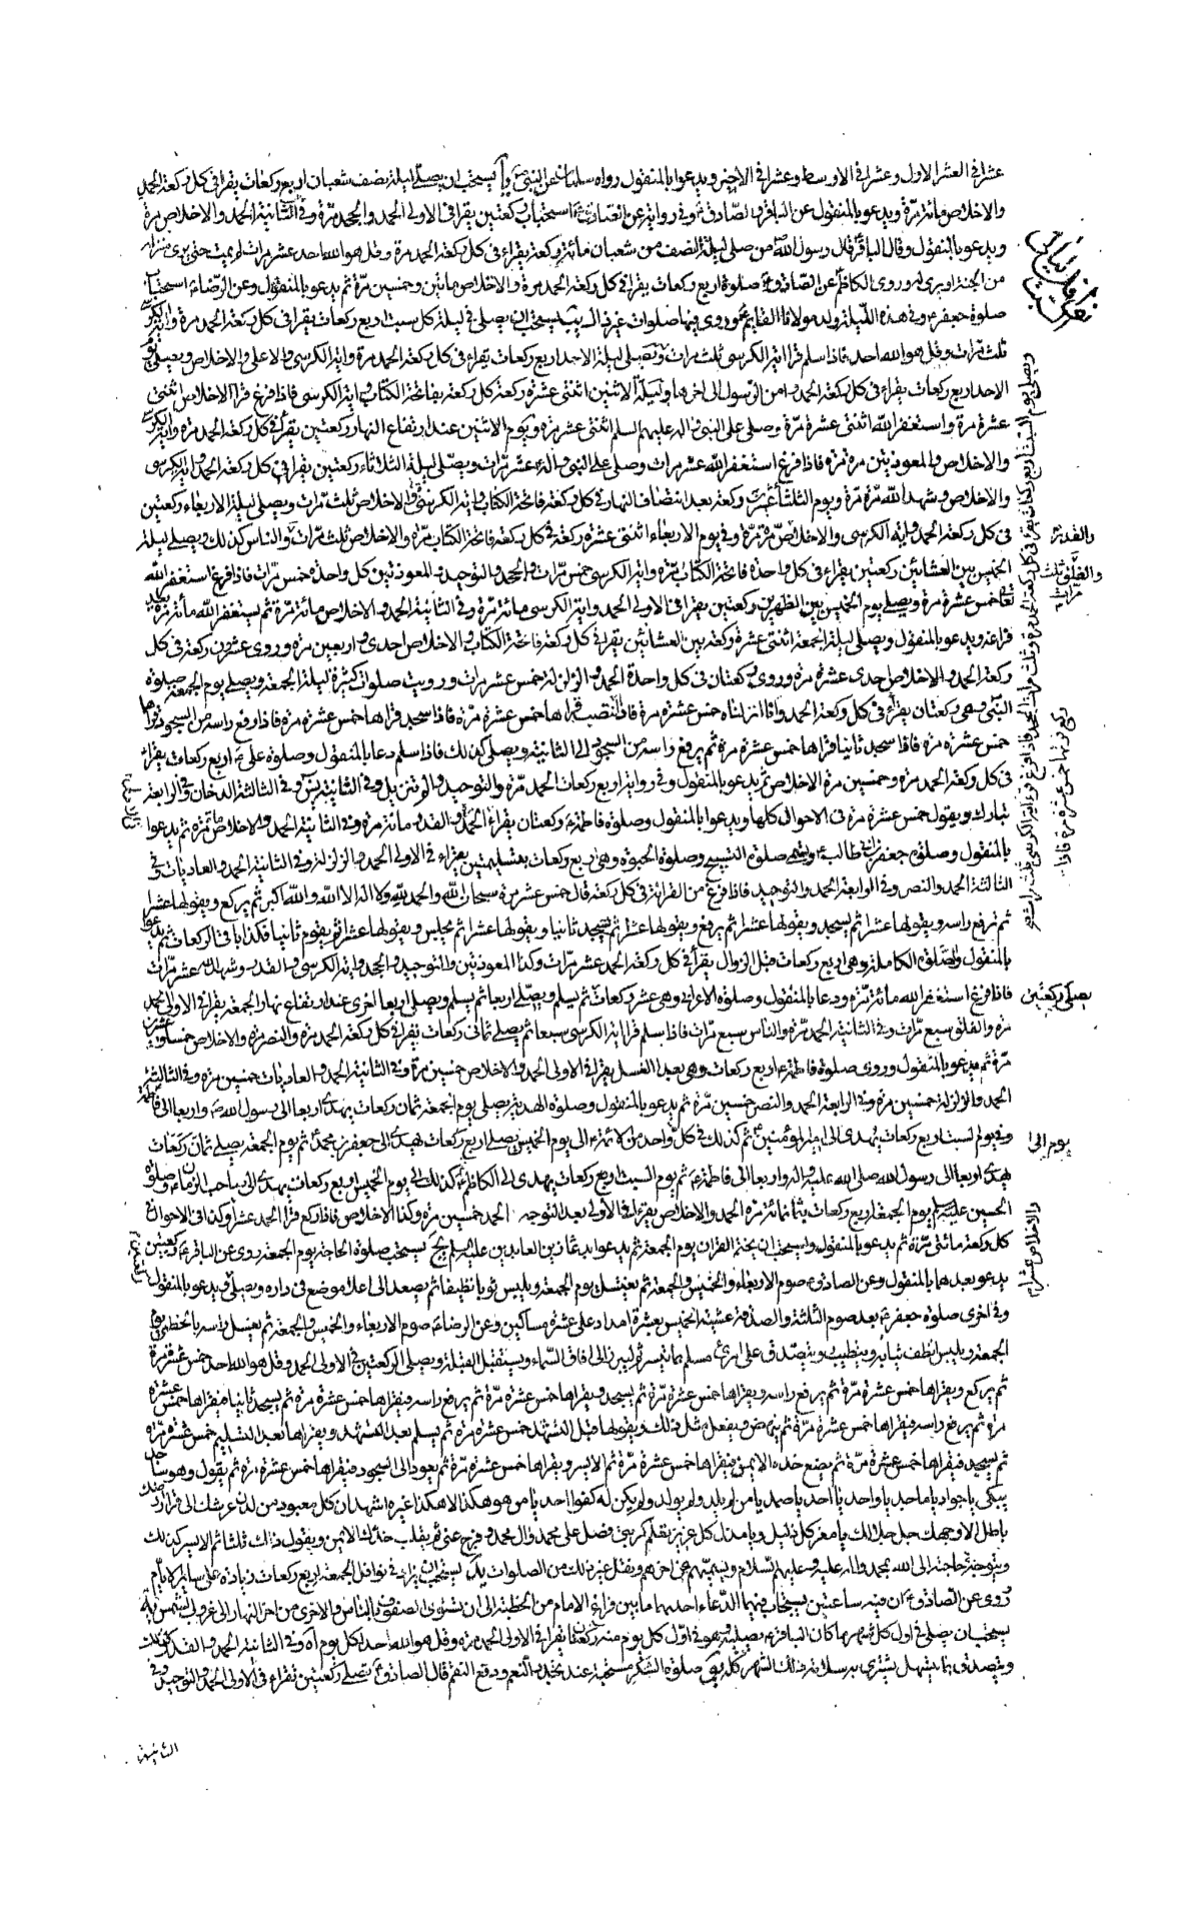 عشرا في العشر الاول وعشرا في الاوسط وعشرا في الاخير ويدعوا بالمنقول رواه سلمان عن النبي ويستحب ان يصلي ليلة نصف شعبان اربع ركعات يقرا في كل ركعة الحمد
والاخلاص مائة مرة ويدعو بالمنقول عن الباقر والصادق وفي رواية عن الصادق استحباب ركعتين يقرا في الاولى الحمد والجحد مرة وفي الثانية الحمد والاخلاص مرة
ويدعو بالمنقول وقال الباقر قال رسول الله من صلى ليلة النصف من شعبان مائة ركعة يقراء في كل ركعة الحمد مرة وقل هو الله احد عشر مرات لم يمت حتى يرى منزله
من الجنة او يرى له وروى الكاظم عن الصادق صلوة اربع ركعات يقرا في كل ركعة الحمد مرة والاخلاص مائتين وخمسين مرة ثم يدعو بالمنقول وعن الرضا استحباب
صلوة جعفر وفي هذه الليلة ولد مولانا القايم وروي فيها صلوات غير ذلك يستحب ان يصلي في ليلة كل سبت اربع ركعات يقرا في كل ركعة الحمد مرة واية الكرسي
ثلث مرات وقل هو الله احد فاذا سلم قرا اية الكرسي ثلث مرات ويصلي ليلة الاحد اربع ركعات يقراء في كل ركعة الحمد مرة واية الكرسي والاعلى والاخلاص ويصلي يوم
الاحد اربع ركعات يقراء في كل ركعة الحمد وامن الرسول الى اخرها وليلة الاثنين اثنتي عشرة ركعة كل ركعة بفاتحة الكتاب واية الكرسي فاذا فرغ قرا الاخلاص اثنتي
عشرة مرة واستغفر الله اثنتي عشرة مرة وصلى على النبي واله عليهم السلم اثنتي عشر مرة ويوم الاثنين عند ارتفاع النهار ركعتين يقرا في كل ركعة الحمد مرة واية الكرسي
والاخلاص والمعوذتين مرة مرة فاذا فرغ استغفر الله عشر مرات وصلى على النبي واله عشر مرات ويصلي ليلة الثلاثاء ركعتين يقرا في كل ركعة الحمد واية الكرسي
والاخلاص وشهد الله مرة مرة ويوم الثلثاء ركعة بعد انتصاف النهار في كل ركعة فاتحة الكتاب واية الكرسي والاخلاص ثلث مرات ويصلي ليلة الاربعاء ركعتين
في كل ركعة الحمد واية الكرسي والاخلاص مرة مرة وفي يوم الاربعاء اثنتي عشرة ركعة في كل ركعة فاتحة الكتاب مرة والاخلاص ثلث مرات والناس كذلك ويصلي ليلة
الخميس بين العشائين ركعتين يقراء في كل واحدة فاتحة الكتاب مرة واية الكرسي خمس مرات والجحد والتوحيد والمعوذتين كل واحدة خمس مرات فاذا فرغ استغفر الله
خمس عشرة مرة ويصلي يوم الخميس بين الظهرين ركعتين يقرا في الاولى الحمد واية الكرسي مائة مرة وفي الثانية الحمد والاخلاص مائة مرة ثم يستغفر الله مائة مرة بعد
فراغه ويدعو بالمنقول ويصلي ليلة الجمعة اثنتي عشرة ركعة بين العشائين يقرا في كل ركعة فاتحة الكتاب والاخلاص احدى واربعين مرة وروي عشرون ركعة في كل
ركعة الحمد والاخلاص احدى عشرة مرة وروي ركعتان في كل واحدة الحمد والزلزلة خمس عشر مرات ورويت صلوات كثيرة ليلة الجمعة ويصلي يوم الجمعة صلوة
النبي وهي ركعتان يقراء في كل ركعة الحمد وانا انزلناه خمس عشرة مرة فاذا انتصب قراها خمس عشرة مرة فاذا سجد قراها خمس عشرة مرة فاذا رفع راسه من السجود قراها
خمس عشرة مرة فاذا سجد ثانيا قراها خمس عشرة مرة ثم يرفع راسه من السجود الى الثانية ويصلي كذلك فاذا سلم دعا بالمنقول وصلوة علي اربع ركعات يقراء
في كل ركعة الحمد مرة وخمسين مرة الاخلاص ثم يدعو بالمنقول وفي رواية اربع ركعات الحمد مرة والتوحيد والم تنزيل وفي الثانية يس وفي الثالثة الدخان وفي الرابعة
تبارك ويقول خمس عشرة مرة في الاحوال كلها ويدعوا بالمنقول وصلوة فاطمة ركعتان يقراء الحمد والقدر مائة مرة وفي الثانية الحمد والاخلاص مائة مرة ثم يدعوا
بالمنقول وصلوة جعفر بن ابي طالب وتسمى صلوة التسبيح وصلوة الحبوة وهي اربع ركعات بتسليمتين يقراء في الاولى الحمد والزلزلة وفي الثانية الحمد والعاديات وفي
الثالثة الحمد والنصر وفي الرابعة الحمد والتوحيد فاذا فرغ من القراءة في كل ركعة قال خمس عشر مرة سبحان الله والحمد لله ولا اله الا الله والله اكبر ثم يركع ويقولها عشرا
ثم يرفع راسه ويقولها عشرا ثم يسجد ويقولها عشرا ثم يرفع ويقولها عشرا ثم يسجد ثانيا ويقولها عشرا ثم يجلس ويقولها عشرا ثم يقوم ثانيا فكذا باقي الركعات ثم يدعوا
بالمنقول والصلوة الكاملة وهي اربع ركعات قبل الزوال يقرا في كل ركعة الحمد عشر مرات وكذا المعوذتين والتوحيد والجحد واية الكرسي والقدر وشهد الله عشر مرات
فاذا فرغ استغفر الله مائة مرة ودعا بالمنقول وصلوة الاعرابي وهي عشر ركعات ثم يسلم ويصلي اربعا ثم يسلم ويصلي اربعا اخرى عند ارتفاع نهار الجمعة يقرا في الاولى الحمد
مرة والفلق سبع مرات وفي الثانية الحمد مرة والناس سبع مرات فاذا سلم قرا اية الكرسي سبعا ثم يصلي ثماني ركعات يقرا في كل ركعة الحمد مرة والنصر مرة والاخلاص خمسا وعشرين
مرة ثم يدعو بالمنقول وروي صلوة فاطمة اربع ركعات وهي بعد الغسل يقرا في الاولى الحمد والاخلاص خمسين مرة وفي الثانية الحمد والعاديات خمسين مرة وفي الثالثة
الحمد والزلزلة خمسين مرة وفي الرابعة الحمد والنصر خمسين مرة ثم يدعو بالمنقول وصلوة الهدية يصلي يوم الجمعة ثمان ركعات يهدى اربعا الى رسول الله واربعا الى فاطمة
وفي يوم السبت اربع ركعات يهدى الى امير المؤمنين ثم كذلك في كل واحد من الائمة الى يوم الخميس يصلي اربع ركعات يهدى الى جعفر بن محمد ثم يوم الجمعة يصلي ثمان ركعات
يهدى اربعا الى رسول الله صلى الله عليه واله واربعا الى فاطمة ثم يوم السبت اربع ركعات يهدى الى الكاظم كذلك الى يوم الخميس اربع ركعات يهدى الى صاحب الزمان وصلوة
الحسين عليه السلم يوم الجمعة اربع ركعات بثمانمائة مرة الحمد والاخلاص يقرا في الاولى بعد التوجه الحمد خمسين مرة وكذا الاخلاص فاذا ركع قرا الحمد عشرا وكذا في الاحوال
كل ركعة مائتي مرة ثم يدعو بالمنقول ويستحب ان يختم القران يوم الجمعة ثم يدعو بدعا زين العابدين عليه السلم يستحب صلوة الحاجة يوم الجمعة روي عن الباقر ركعتين
يدعو بعدهما بالمنقول وعن الصادق صوم الاربعاء والخميس والجمعة ثم يغتسل يوم الجمعة ويلبس ثوبا نظيفا ثم يصعد الى اعلا موضع في داره ويصلي ويدعو بالمنقول
وفي اخرى صلوة جعفر بعد صوم الثلثة والصدقة عشية الخميس بعشرة امداد على عشرة مساكين وعن الرضا صوم الاربعاء والخميس والجمعة ثم يغسل راسه بالخطمي يوم
الجمعة ويلبس انظف ثيابه ويتطيب ويتصدق على امرئ مسلم بما تيسر ثم ليبرز الى افاق السماء ويستقبل القبلة ويصلي الركعتين في الاولى الحمد وقل هو الله احد خمس عشرة مرة
ثم يركع ويقراها خمس عشرة مرة ثم يرفع راسه ويقراها خمس عشرة مرة ثم يسجد ويقراها خمس عشرة مرة ثم يرفع راسه فيقراها خمس عشرة مرة ثم يسجد ثانيا فيقراها خمس عشرة
مرة ثم يرفع راسه فيقراها خمس عشرة مرة ثم ينهض ويفعل مثل ذلك ويقولها قبل التشهد خمس عشرة مرة ثم يسلم بعد التشهد ويقراها بعد التسليم خمس عشرة مرة
ثم يسجد فيقراها خمس عشرة مرة ثم يضع خده الايمن فيقراها خمس عشرة مرة ثم الايسر ويقراها خمس عشرة مرة ثم يعود الى السجود فيقراها خمس عشرة مرة ثم يقول وهو ساجد
يبكي يا جواد يا ماجد يا واحد يا احد يا صمد يا من لم يلد ولم يولد ولم يكن له كفوا احد يا من هو هكذا لا هكذا غيره اشهد ان كل معبود من لدن عرشك الى قرار ارضك
باطل الا وجهك جل جلالك يا معز كل ذليل ويا مذل كل عزيز تعلم كربتي فصل على محمد وال محمد وفرج عني ثم يقلب خدك الايمن ويقول ذلك ثلثا ثم الايسر كذلك
ويتوجه حاجته الى الله بمحمد واله عليه وعليهم السلام ويسميهم عن اخرهم ونقل غير ذلك من الصلوات يستحب ان يزاد في نوافل الجمعة اربع ركعات زيادة على ساير الايام
روي عن الصادق ان فيه ساعتين يستجاب فيهما الدعاء احديهما ما بين فراغ الامام من الخطبة الى ان تستوي الصفوف بالناس والاخرى من اخر النهار الى غروب الشمس
يستحب ان يصلي في اول كل شهر ما كان الباقر يصليه وهو في اول كل يوم منه ركعتان يقرا في الاولى الحمد مرة وقل هو الله احد لكل يوم مرة وفي الثانية الحمد والقدر كذلك
ويتصدق بما يتسهل يشترى به سلامة ذلك الشهر كله صلوة الشكر مستحبة عند تجدد النعم ودفع النقم قال الصادق تصلي ركعتين تقراء في الاولى الحمد والتوحيد وفي
والقدر
والفلق ثلث مرات
يصلي ركعتين
يوم الى
والاخلاص عشرا
الثانية